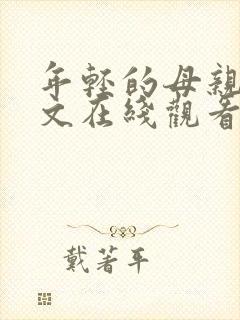 年轻的母親
文在綫觀看
戴著平